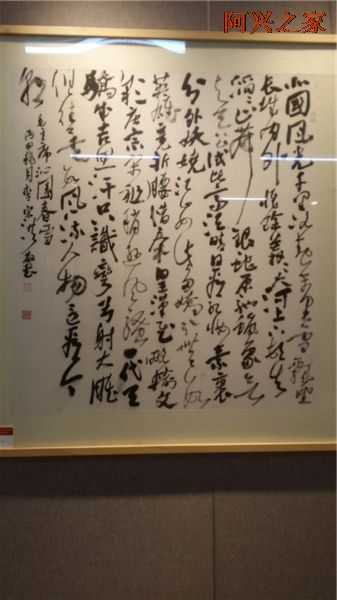 阿兴之家
北國风光千里冰封万里雪飘望
长城内外惟馀莽莽大河上下顿失
滔滔山舞银蛇原驰蜡象欲与
天公试比高须晴日看红妆素裹
分外妖娆江山如此多娇引无数
英雄竞折腰惜秦皇汉武略输文
彩唐宗宋祖稍逊风骚一代天
骄成吉思汗只識弯弓射大雕
俱往矣数风流人物还看今
朝
毛主席沁園春雪